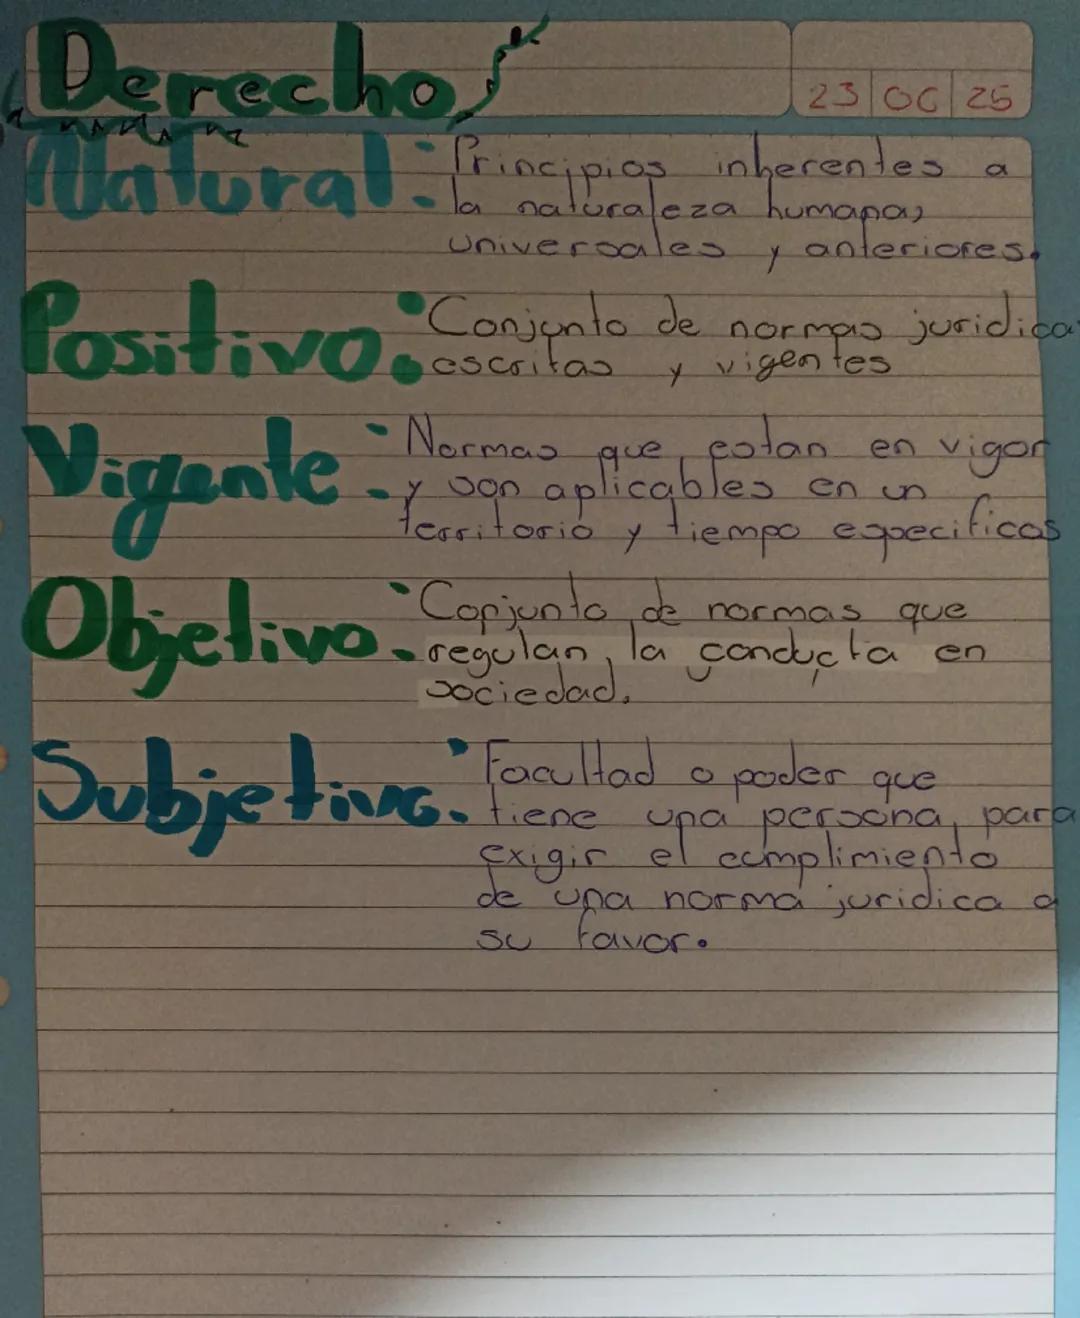 Derecho
23 OC 25
Natural: Principios inherentes a
la naturaleza humana,
universales y anteriores.
Positivo: Conjunto de normas juridica
escritas y vigentes
Vigente: Normas que estan en vigor
y son aplicables en un
territorio y tiempo especificas
Objetivo: Conjunto de normas que
regulan la conducta en
sociedad.
Subjetivo: Facultad o poder que
tiene una persona para
exigir el cumplimiento
de una norma juridica a
su favor.